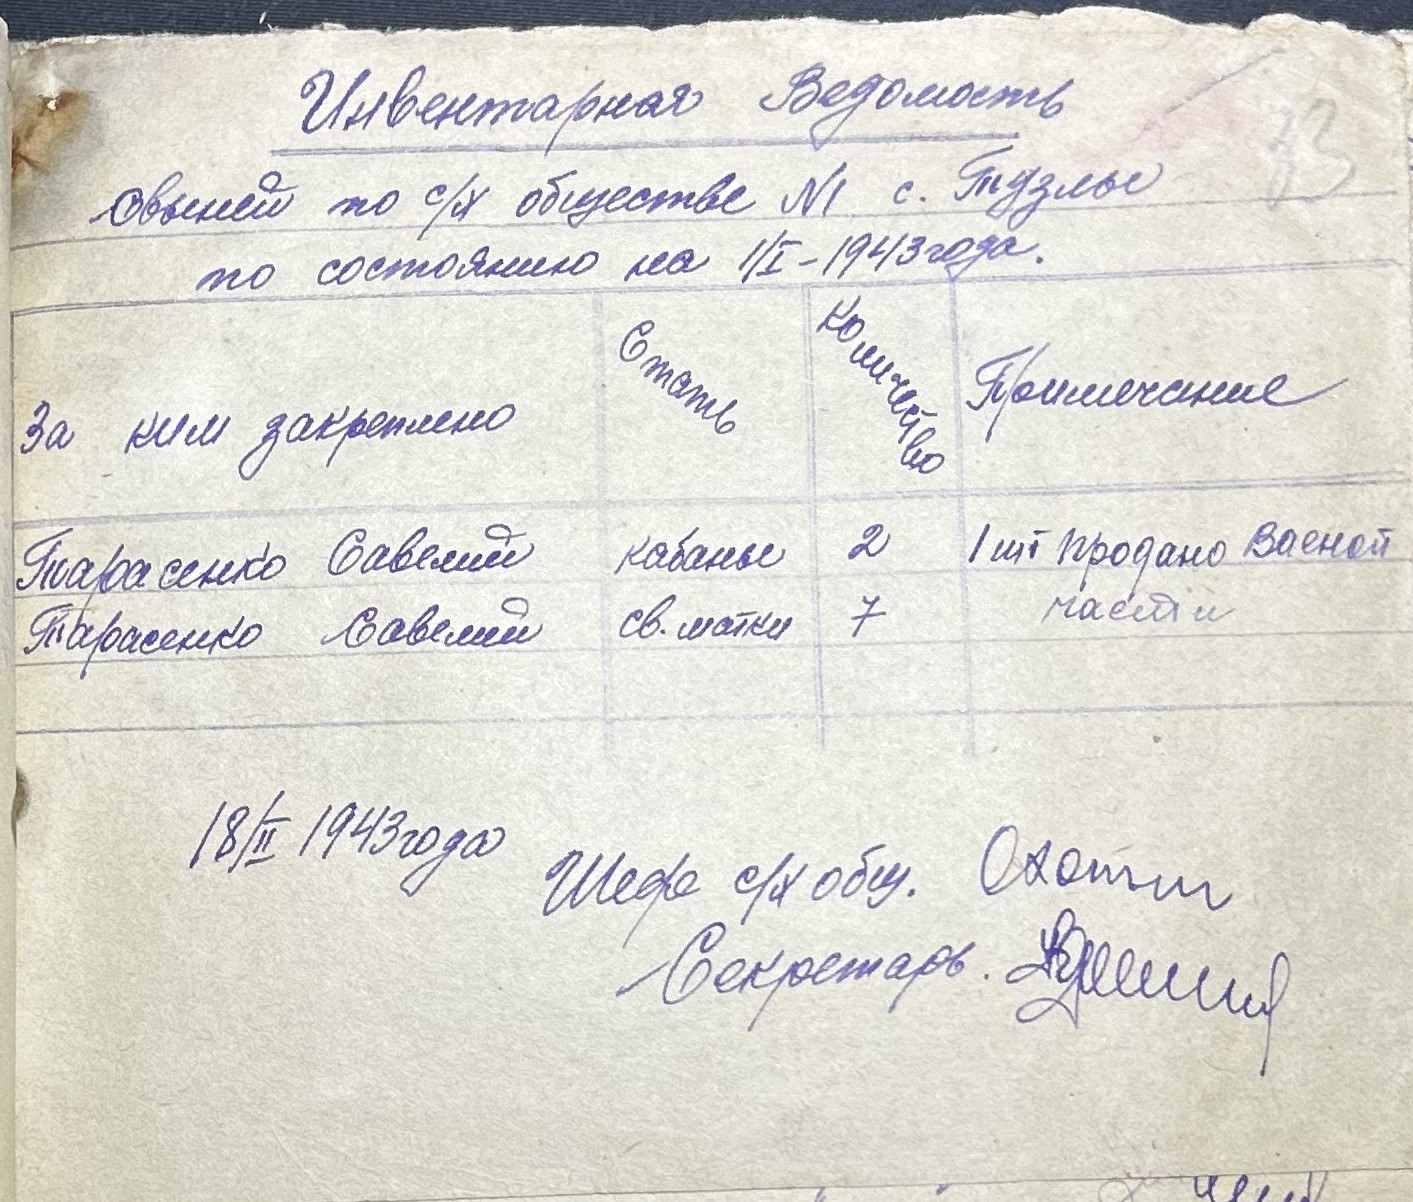 Инвентарная Ведомость
73
свыней по с/х обществе N1 с. Тузлы
по состоянию на 1/I-1943 года.
За ким закреплено Стать Количество Примечание
Тарасенко Савелий кабаны 2 1 шт продано Ваеной
части
Тарасенко Савелий св. матки 7
18/II 1943 года
Шефр с/х общ. Охотин
Секретарь.